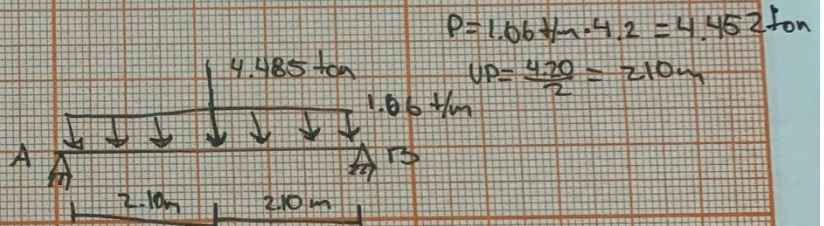 P=1.06 t/m·4.2 = 4.452 ton
UP= 4.20/2 = 2.10m
4.485 ton
1.06 t/m
A
B
2.10m
2.10 m